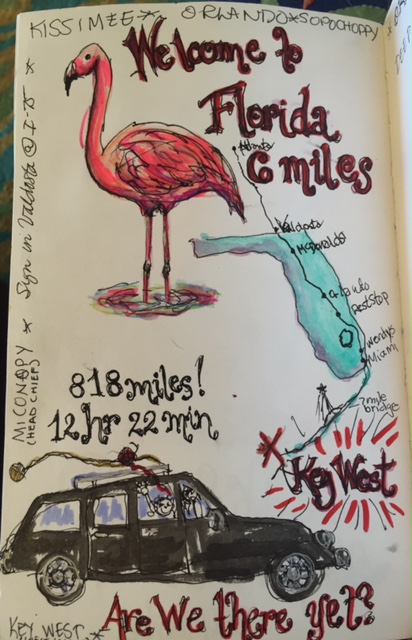 KISSIMEE * ORLANDO * SOPOCHOPPY
Welcome to
Florida
6 miles
Sign in Valdosta @ I-75 *
Atlanta
Valdosta
McDonalds
Orlando
Rest Stop
Wendys
Miami
7 mile
bridge
MICONOPY *
(HEAD CHIEFS)
818 miles!
12 hr 22 min
X
Key West
KEY WEST *
Are We there yet?